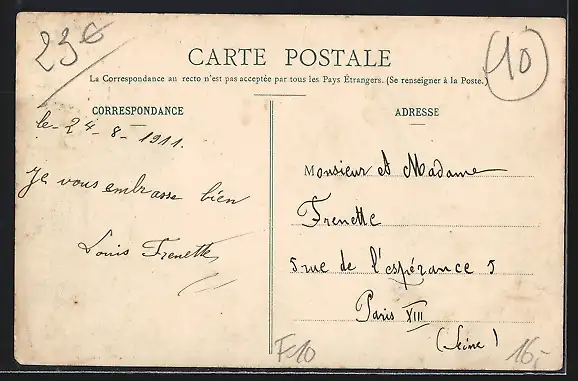 23€
10
CARTE POSTALE
La Correspondance au recto n'est pas acceptée par tous les Pays Étrangers. (Se renseigner à la Poste.)
CORRESPONDANCE
le 24-8-1911.
Je vous embrasse bien
Louis Frenette
ADRESSE
Monsieur et Madame
Frenette
5 rue de l'espérance 5
Paris XIII
(Seine)
F10
16,-